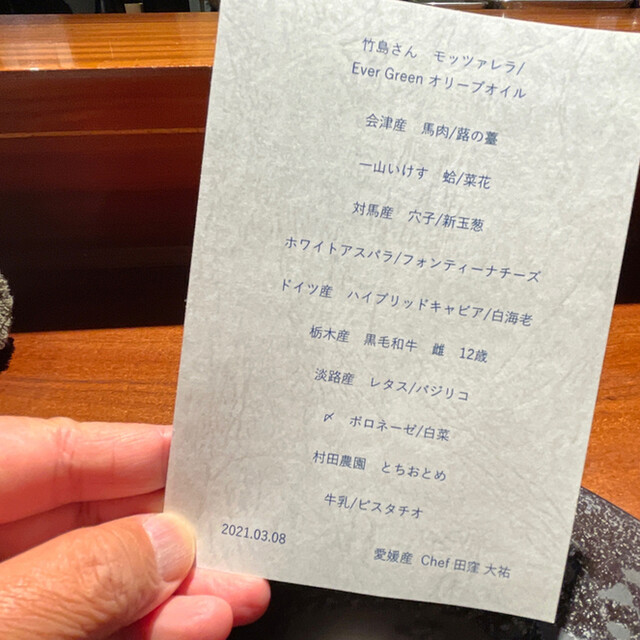 竹島さん　モッツァレラ/
Ever Green オリーブオイル
会津産　馬肉/蕗の薹
一山いけす　蛤/菜花
対馬産　穴子/新玉葱
ホワイトアスパラ/フォンティーナチーズ
ドイツ産　ハイブリッドキャビア/白海老
栃木産　黒毛和牛　雌　12歳
淡路産　レタス/バジリコ
〆　ボロネーゼ/白菜
村田農園　とちおとめ
牛乳/ピスタチオ
2021.03.08
愛媛産 Chef 田窪 大祐